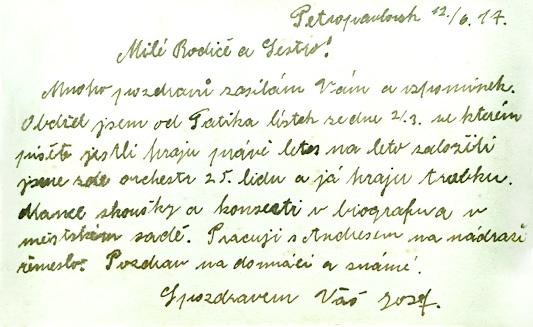 Petropavlovsk 12./6. 17.
Milé Rodiče a Sestro!
Mnoho pozdravů zasílám Vám a vzpomínek.
Obdržel jsem od Tatíka lístek ze dne 2/3. ve kterém
píšete jestli hraju právě letos na leto založili
jsme zde orchestr 25. lidu a já hraju trubku.
Máme skoušky a koncerti v biografu a v
městském sadě. Pracuji s Andresem na nádraží
řemeslo. Pozdrav na domácí a známé.
S pozdravem Váš Jozef.